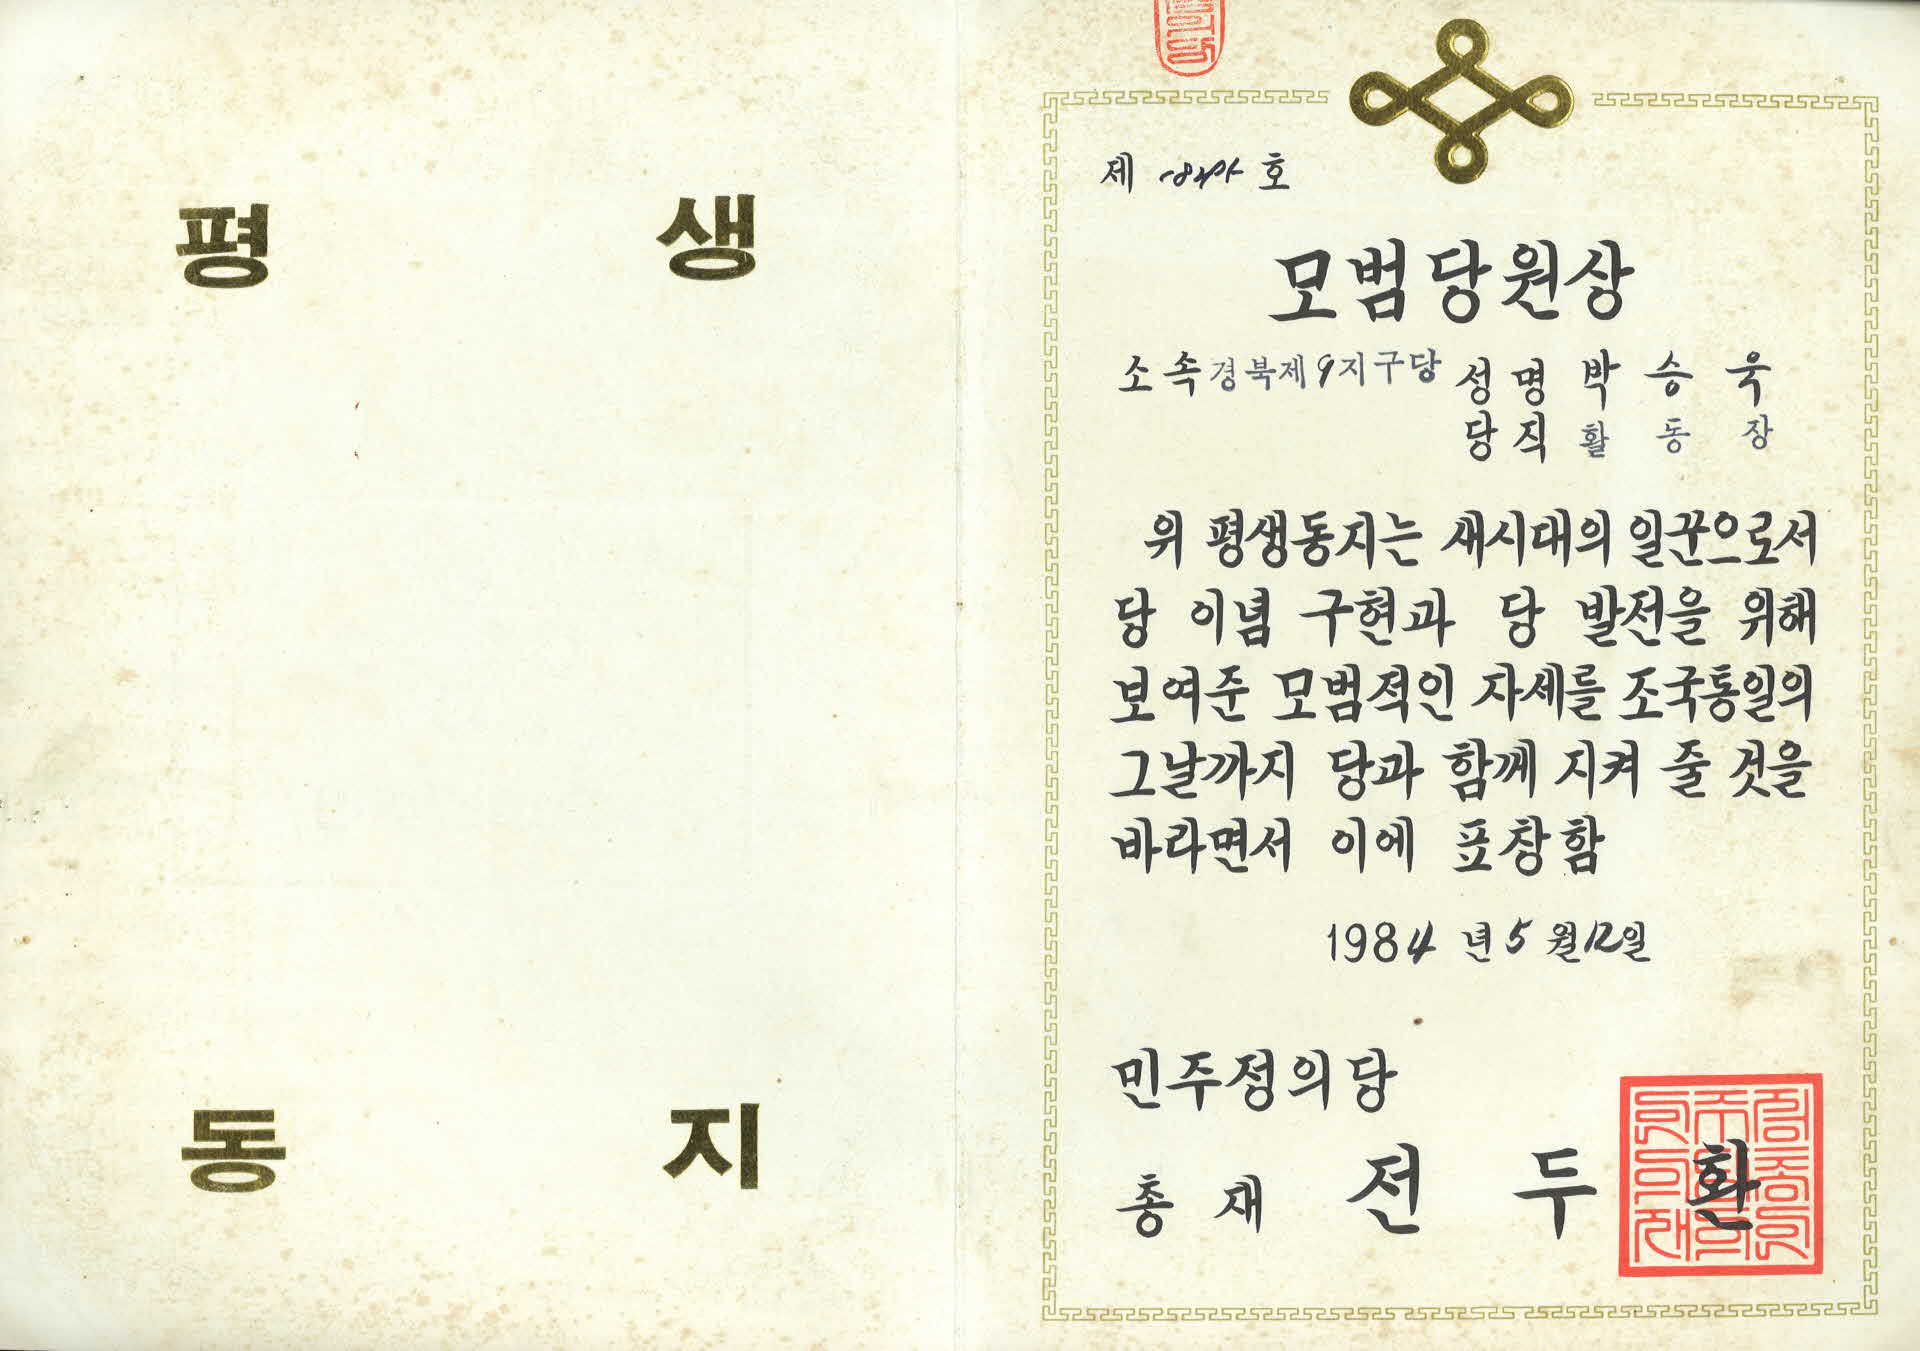 평 생
동 지
제 호
모범당원상
소속 경북제9지구당 성명 박승욱
당직 활동장
위 평생동지는 새시대의 일꾼으로서
당 이념 구현과 당 발전을 위해
보여준 모범적인 자세를 조국통일의
그날까지 당과 함께 지켜 줄 것을
바라면서 이에 표창함
1984년 5월 12일
민주정의당
총재 전두환